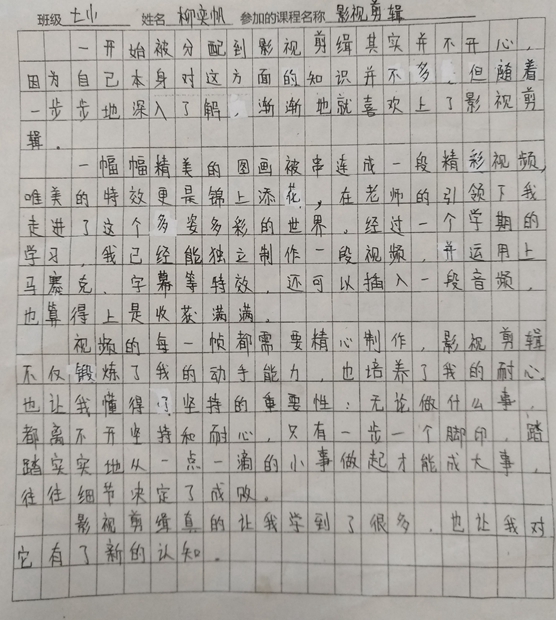 班级 七(1) 姓名 柳奕帆 参加的课程名称 影视剪辑
一开始被分配到影视剪缉其实并不开心，
因为自己本身对这方面的知识并不多，但随着
一步步地深入了解，渐渐地就喜欢上了影视剪
辑。
一幅幅精美的图画被串连成一段精彩视频，
唯美的特效更是锦上添花，在老师的引领下我
走进了这个多姿多彩的世界。经过一个学期的
学习，我已经能独立制作一段视频，并运用上
马赛克、字幕等特效，还可以插入一段音频，
也算得上是收获满满。
视频的每一帧都需要精心制作，影视剪辑
不仅锻炼了我的动手能力，也培养了我的耐心。
也让我懂得了坚持的重要性：无论做什么事，
都离不开坚持和耐心，只有一步一个脚印，踏
踏实实地从一点一滴的小事做起才能成大事，
往往细节决定了成败。
影视剪缉真的让我学到了很多，也让我对
它有了新的认知。